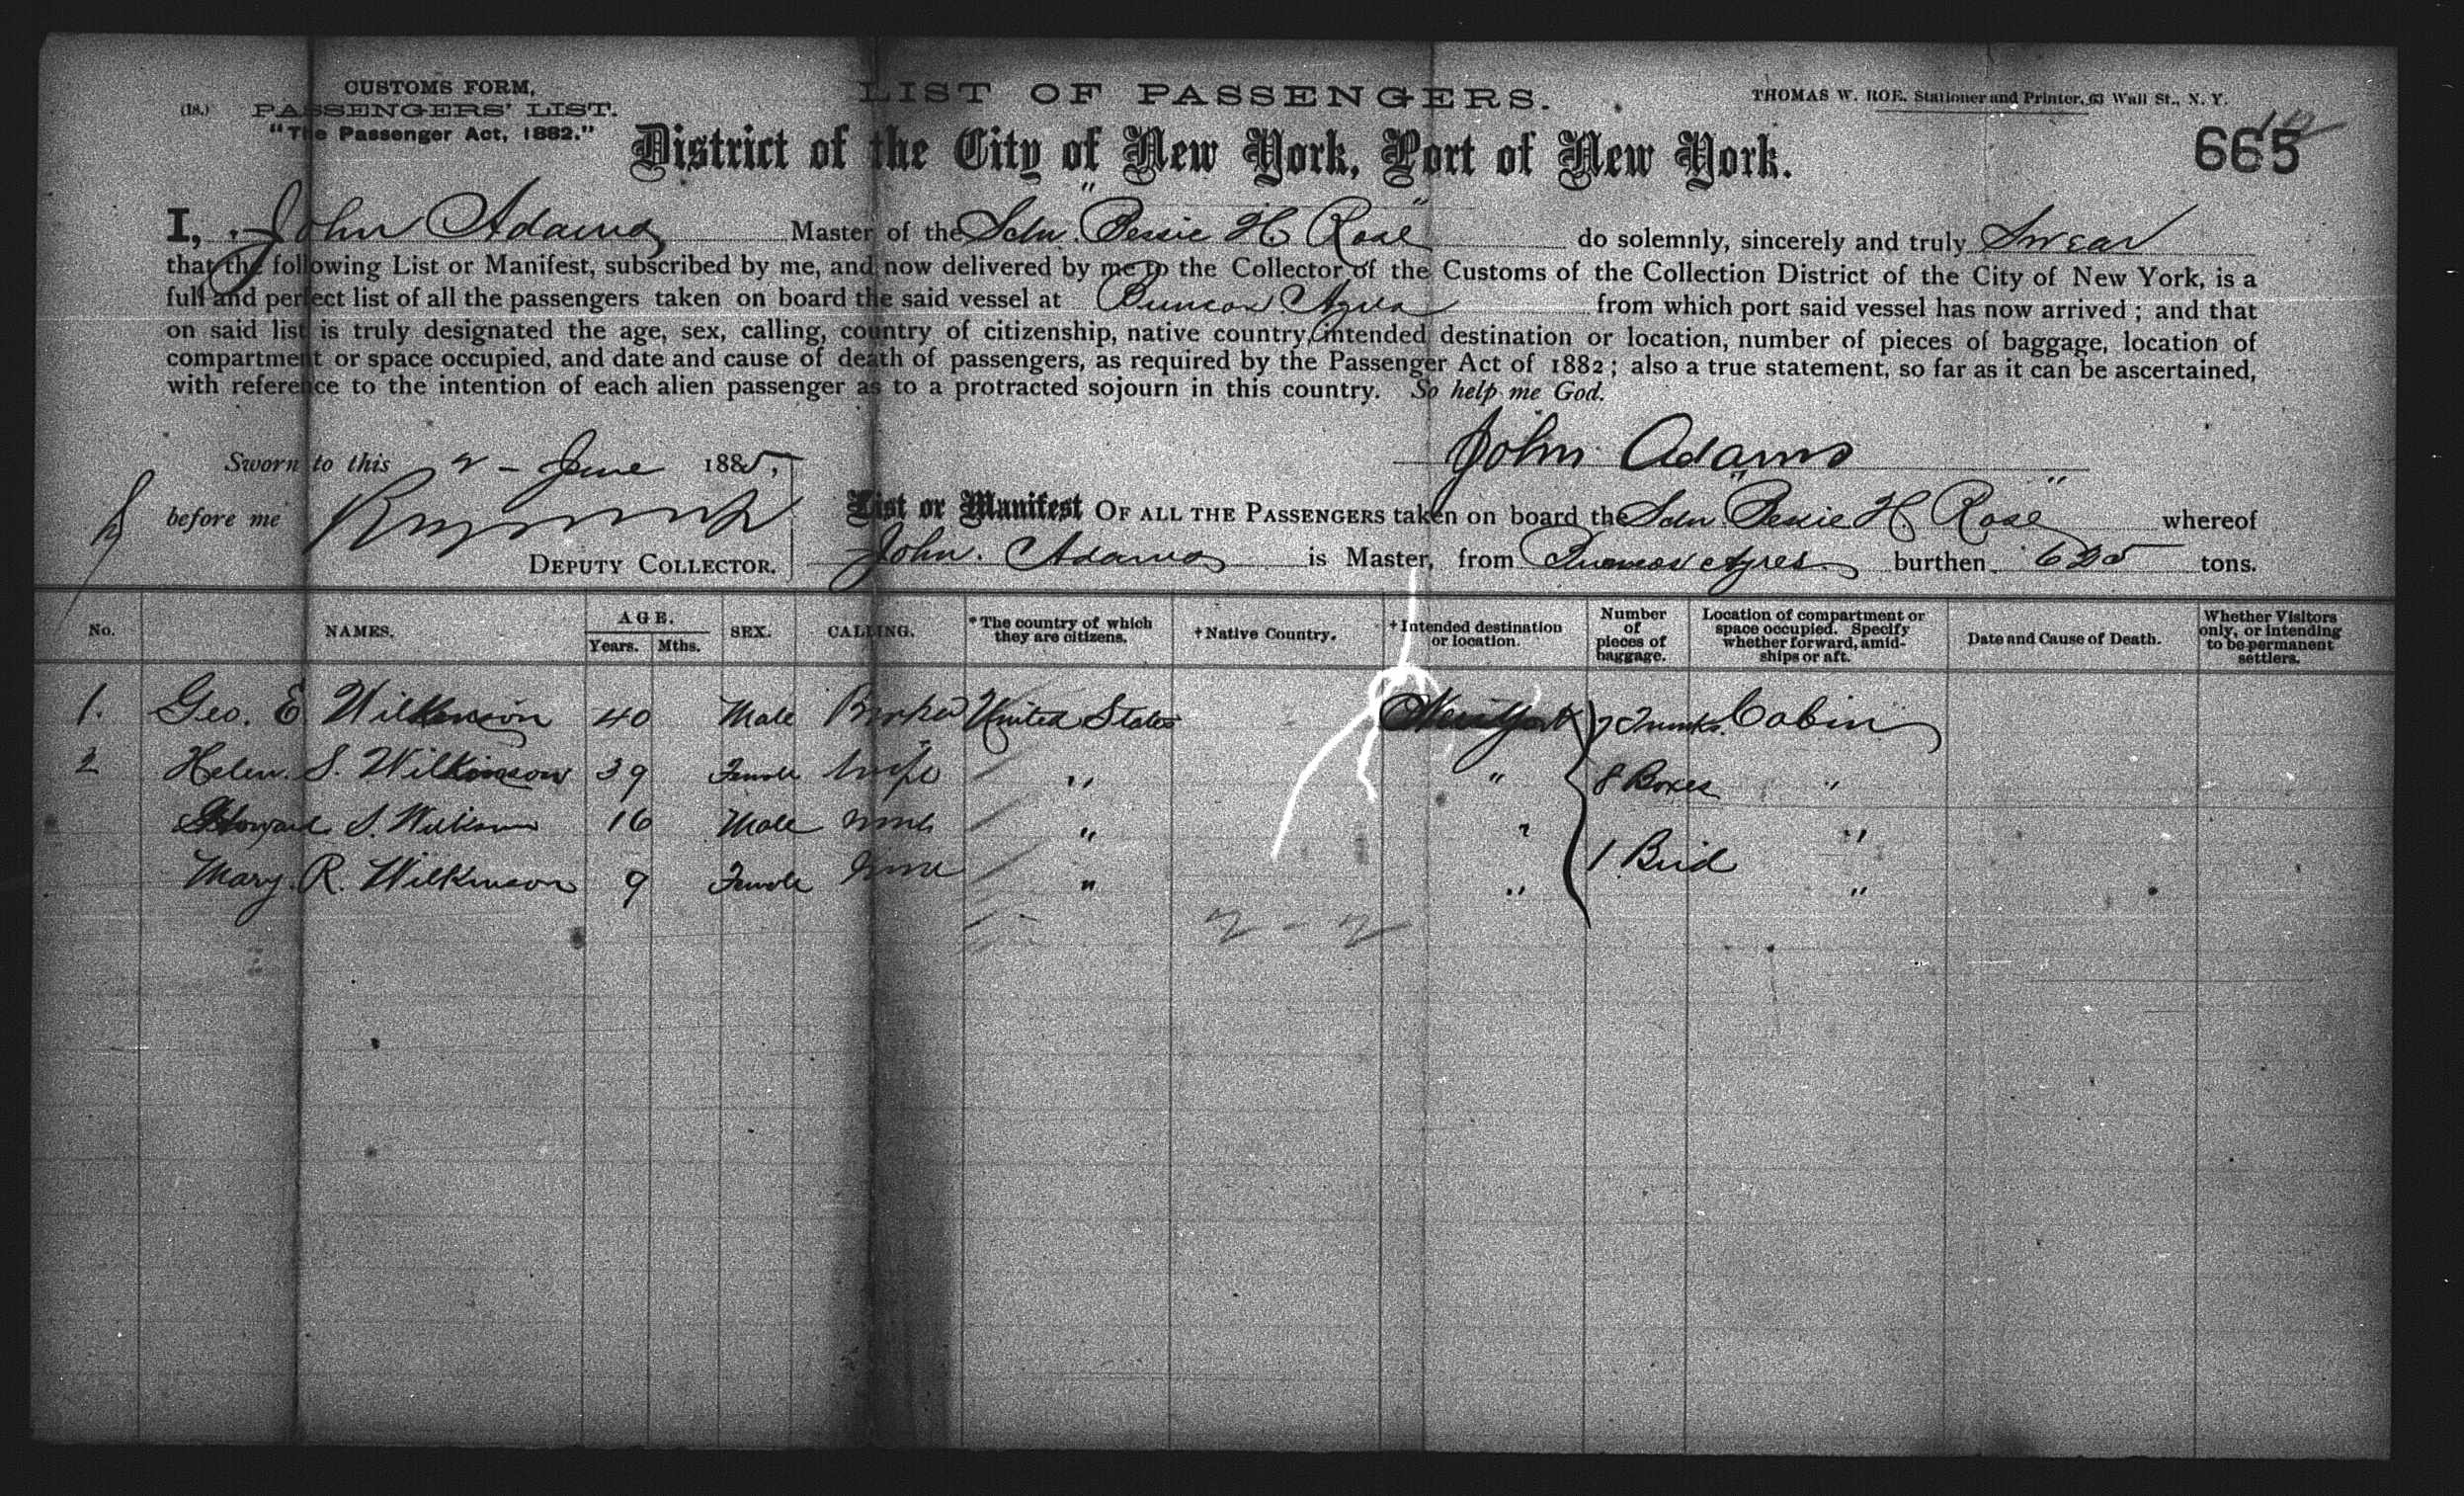 CUSTOMS FORM,
(18.) PASSENGERS' LIST.
"The Passenger Act, 1882."
LIST OF PASSENGERS.
THOMAS W. ROE. Stationer and Printer, 63 Wall St., N. Y.
District of the City of New York, Port of New York.
665
I, John Adams Master of the Schr. "Bessie H. Rose" do solemnly, sincerely and truly Swear
that the following List or Manifest, subscribed by me, and now delivered by me to the Collector of the Customs of the Collection District of the City of New York, is a
full and perfect list of all the passengers taken on board the said vessel at Buenos Ayres from which port said vessel has now arrived; and that
on said list is truly designated the age, sex, calling, country of citizenship, native country, intended destination or location, number of pieces of baggage, location of
compartment or space occupied, and date and cause of death of passengers, as required by the Passenger Act of 1882; also a true statement, so far as it can be ascertained,
with reference to the intention of each alien passenger as to a protracted sojourn in this country. So help me God.
John Adams
Sworn to this 2 - June 1885,
before me
DEPUTY COLLECTOR.
List or Manifest OF ALL THE PASSENGERS taken on board the Schr. "Bessie H. Rose" whereof
John Adams is Master, from Buenos Ayres burthen 625 tons.
No. NAMES. AGE. Years. Mths. SEX. CALLING. *The country of which they are citizens. †Native Country. †Intended destination or location. Number of pieces of baggage. Location of compartment or space occupied. Specify whether forward, amidships or aft. Date and Cause of Death. Whether Visitors only, or intending to be permanent settlers.
1. Geo. E Wilkinson 40 Male Broker United States New York 7 Trunks. Cabin
2 Helen. S. Wilkinson 39 Female Wife " " 8 Boxes "
Howard S. Wilkinson 16 Male none " " "
Mary. R. Wilkinson 9 Female none " " 1 Bird "